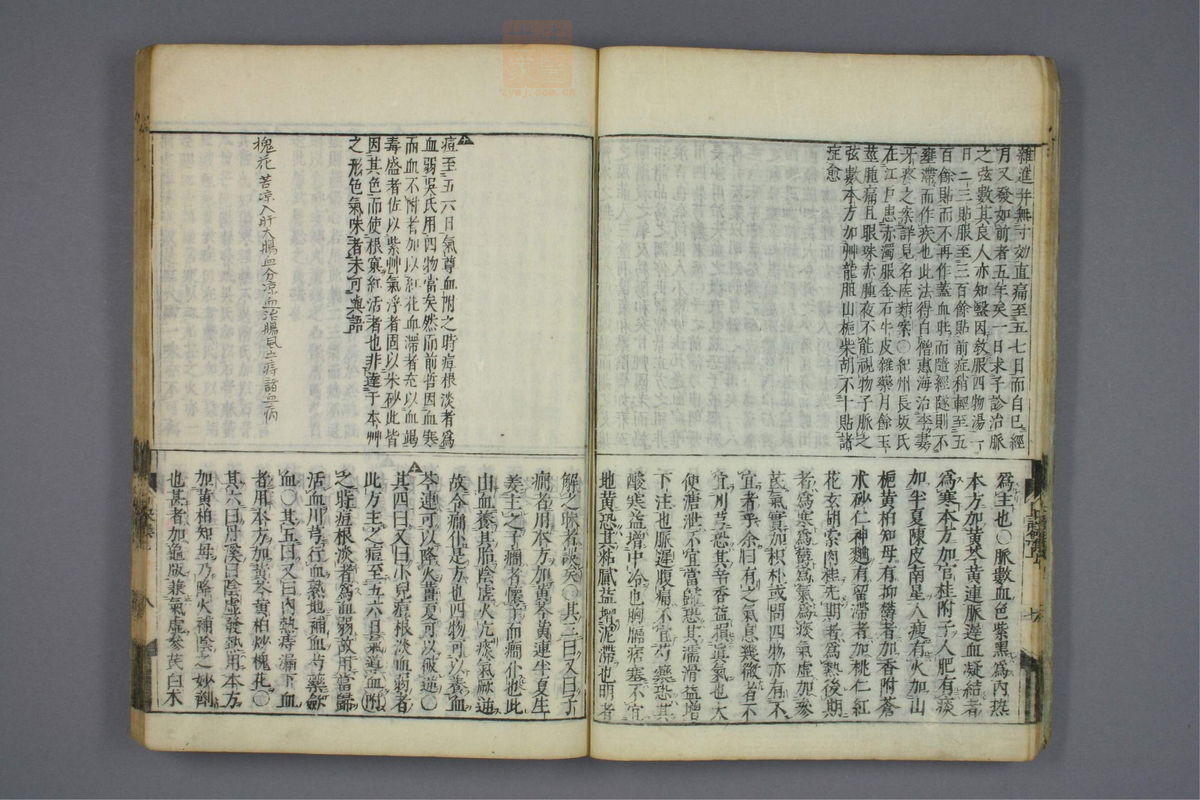 雜進並無寸効直痛至五七日而自已經
月又發如前者五年矣一日求予診治脈
之弦數其良人亦知醫因教服四物湯一
日二三貼服至三百餘貼前症稍輕至五
百餘貼而不再作蓋血旺而隨經隧則不
壅滯而作疾也此法得白僧惠海治李妻
牙疼之案詳見名医類案○紀州長坂氏
在江戸患赤濁服金石牛皮雜藥月餘玉
莖腫痛且眼珠赤腫夜不能視物予脈之
弦數本方加艸龍胆山梔柴胡不十貼諸
症愈
爲主也○脈數血色紫黑爲内热
本方加黄芩黄連脈遲血凝結者
爲寒本方加官桂附子人肥有痰
加半夏陳皮南星人瘦有火加山
梔黄柏知母有抑欝者加香附蒼
朮砂仁神麯有留滯者加桃仁紅
花玄胡索肉桂先期者爲熱後期
者爲寒爲欝爲氣爲痰氣虚加參
芪氣實加枳朴或問四物亦有不
宜者乎余曰有之氣息幾微者不
宜川芎恐其辛香益損眞氣也大
便溏泄不宜當歸恐其濡滑益增
下注也脈遲腹痛不宜芍藥恐其
酸寒益增中冷也胸膈痞塞不宜
地黄恐其粘膩益增泥滯也明者
痘至五六日氣尊血附之時痘根淡者爲
血弱吳氏用四物當矣然而前哲因血寒
而血不附者加以紅花血滯者充以血竭
毒盛者佐以紫艸氣浮者固以朱砂此皆
因其色而使根窠紅活者也非達于本艸
之形色氣味者未可與語
槐花 苦凉入肝大腸血分凉血治腸風止痔諸血病
解之昧者誤矣○其三曰又曰子
癇者用本方加黄芩黄連半夏生
姜主之子癇者儇于血癇仆也此
由血養其胎陰虚火亢痰氣厥逆
故令癇仆是方也四物可以養血
芩連可以降火薑夏可以破逆○
其四曰又曰小兒痘根淡血弱者
此方主之痘至五六日氣尊血附
之時痘根淡者爲血弱故用當歸
活血川芎行血熟地補血芍藥斂
血○其五曰又曰内熱痔漏下血
者用本方加黄芩黄柏炒槐花○
其六曰丹溪曰陰虚發熱用本方
加黄柏知母乃降火補陰之妙劑
也甚者加龜版兼氣虚參芪白朮